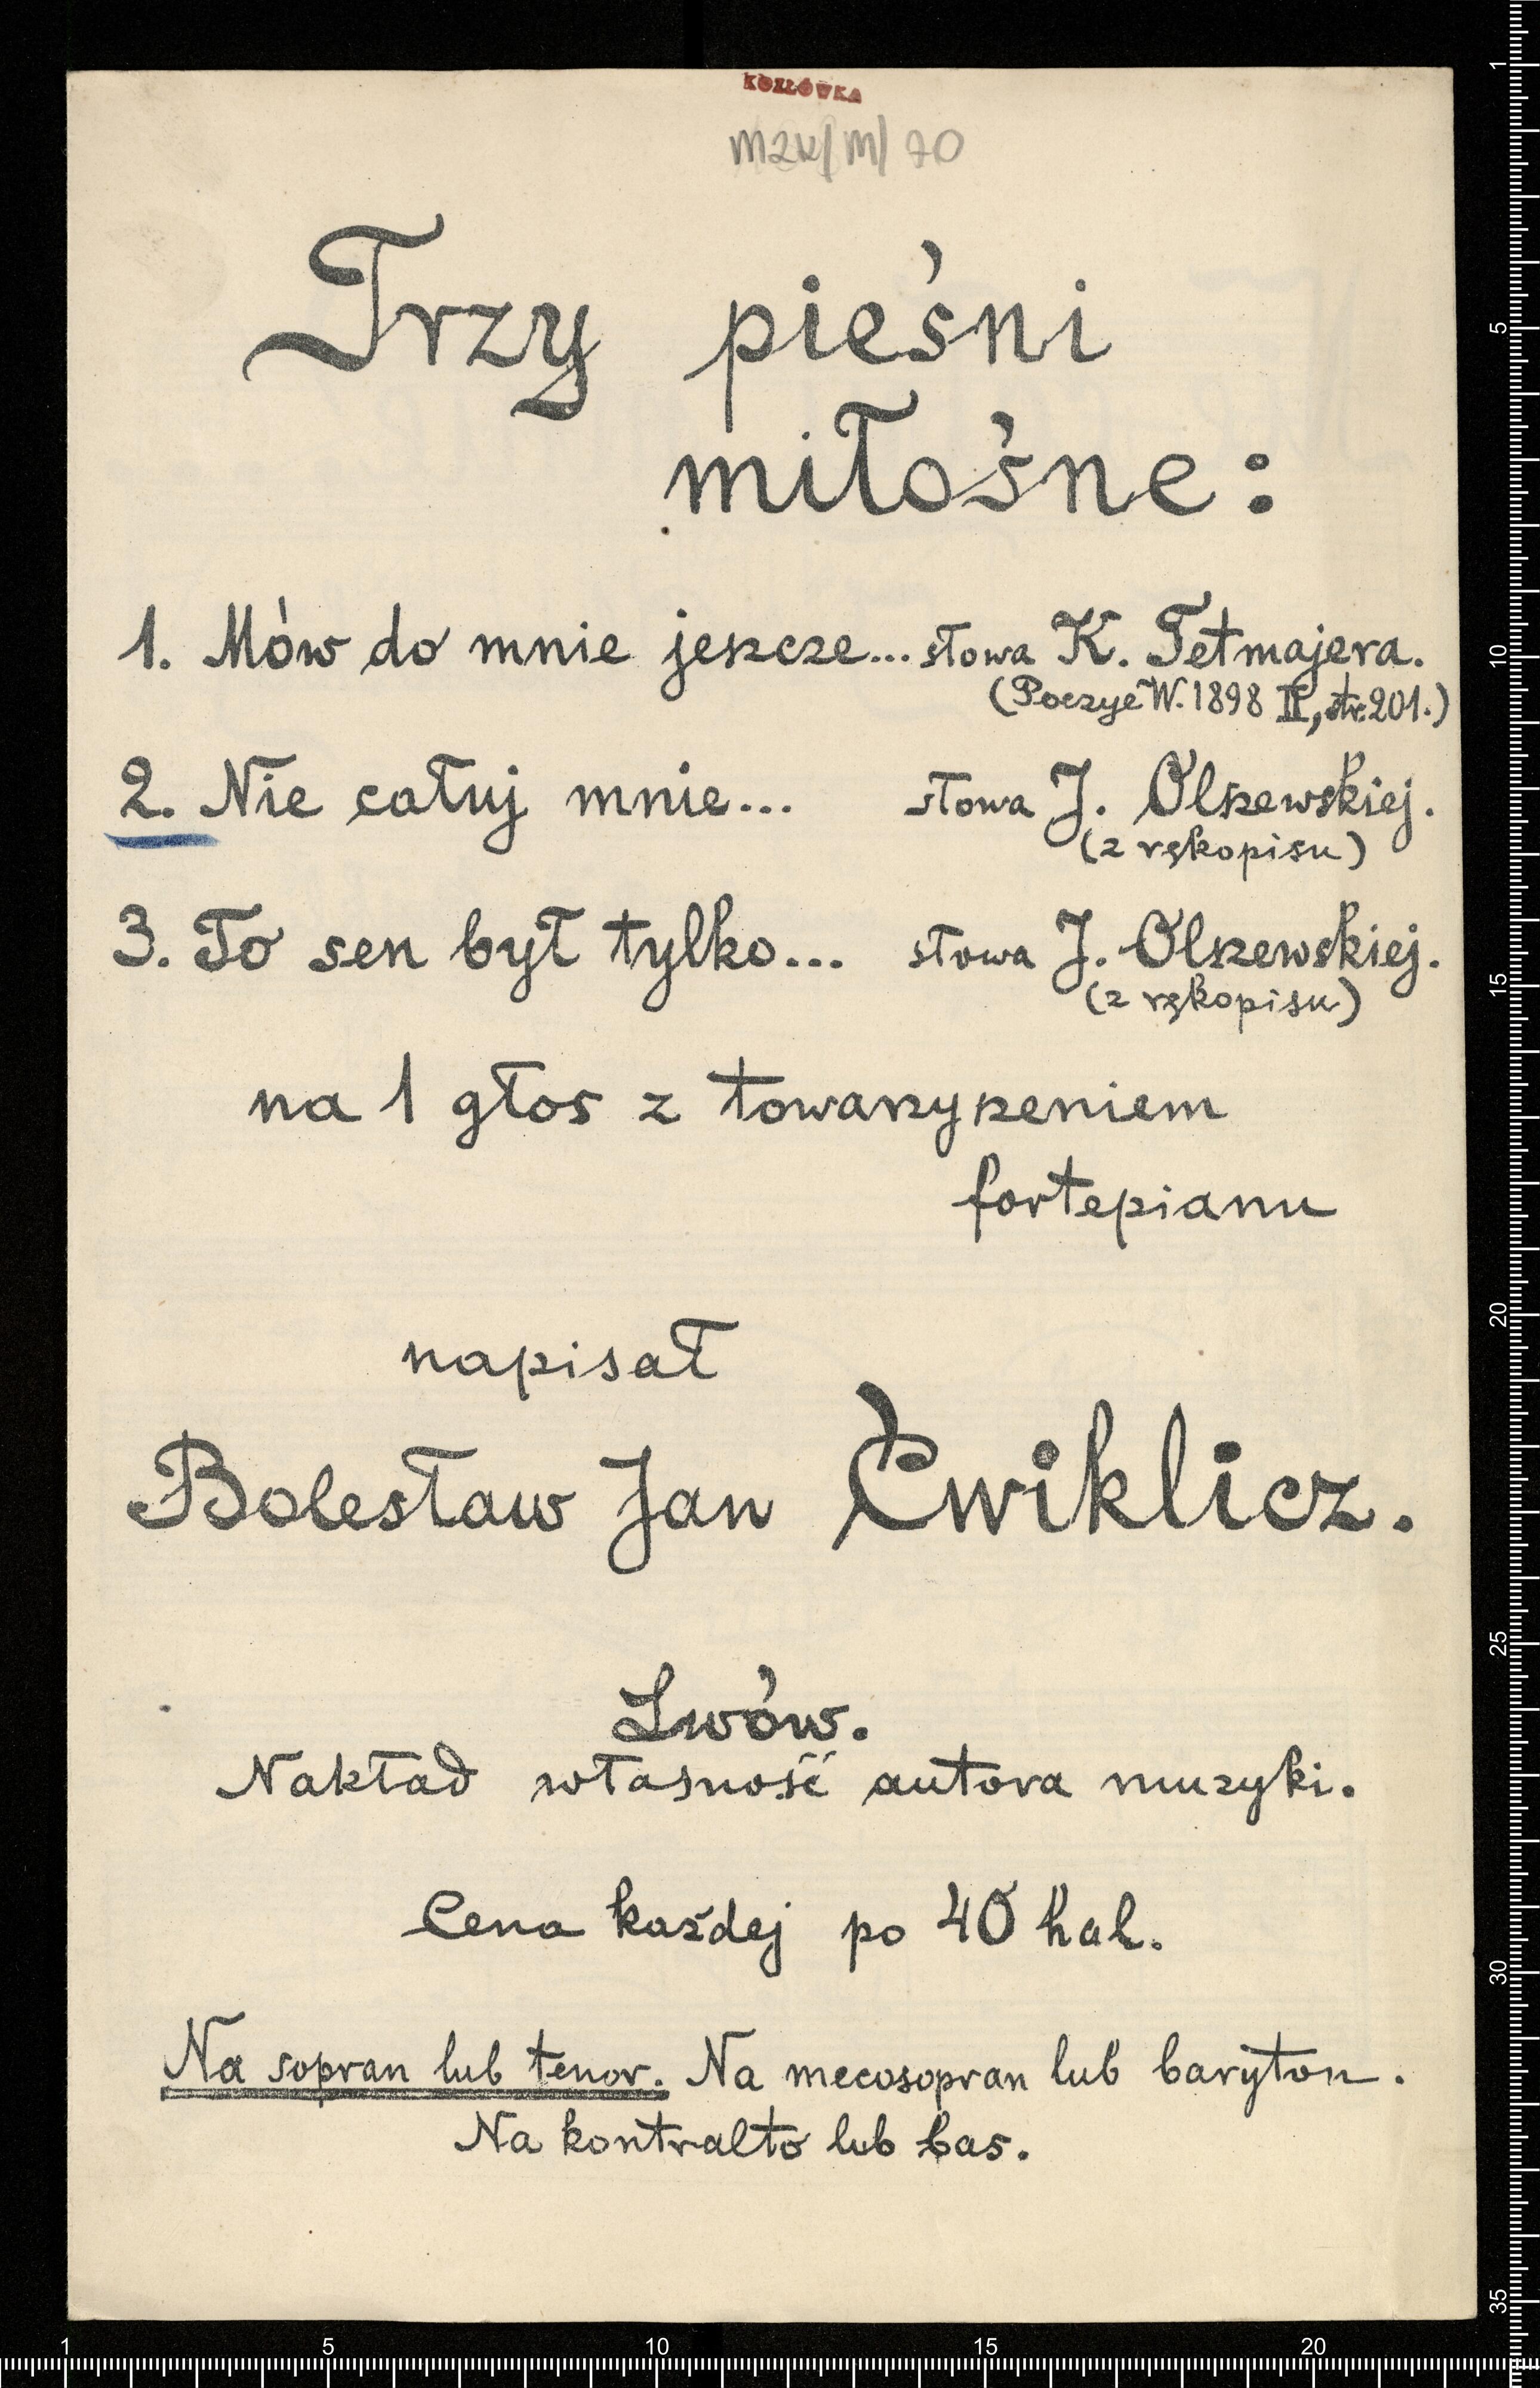 KOZŁÓWKA
MZK/M/70
Trzy pieśni
miłośne:
1. Mów do mnie jeszcze... słowa K. Tetmajera.
(Poezye W. 1898 II, str. 201.)
2. Nie całuj mnie... słowa J. Olszewskiej.
(z rękopisu)
3. To sen był tylko... słowa J. Olszewskiej.
(z rękopisu)
na 1 głos z towarzyszeniem
fortepianu
napisał
Bolesław Jan Ćwiklicz.
Lwów.
Nakład własność autora muzyki.
Cena każdej po 40 hal.
Na sopran lub tenor. Na mecosopran lub baryton.
Na kontralto lub bas.
1
5
10
15
20
25
30
35
1
5
10
15
20